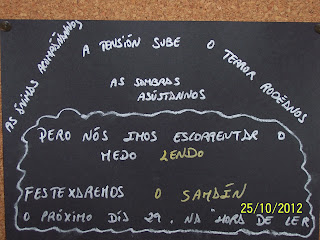 AS ÁNIMAS ACOMPÁÑANNOS
A TENSIÓN SUBE
O TERROR RODÉANOS
AS SOMBRAS
ASÚSTANNOS
PERO NÓS IMOS ESCORRENTAR O
MEDO LENDO
FESTEXAREMOS O SAMAÍN
O PRÓXIMO DÍA 29, NA "HORA DE LER
25/10/2012